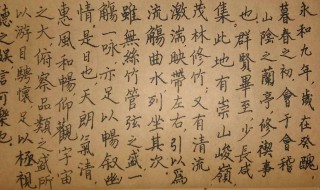 永和九年歲在癸醜
暮春之初會于會稽
山陰之蘭亭修禊事
也群賢畢至少長咸
集此地有崇山峻嶺
茂林修竹又有清流
激湍映帶左右引以為
流觴曲水列坐其次
雖無絲竹管弦之盛一
觴一詠亦足以暢敘幽
情是日也天朗氣清
惠風和暢仰觀宇宙
之大俯察品類之盛所
以遊目騁懷足以極視
聽之娛信可樂也